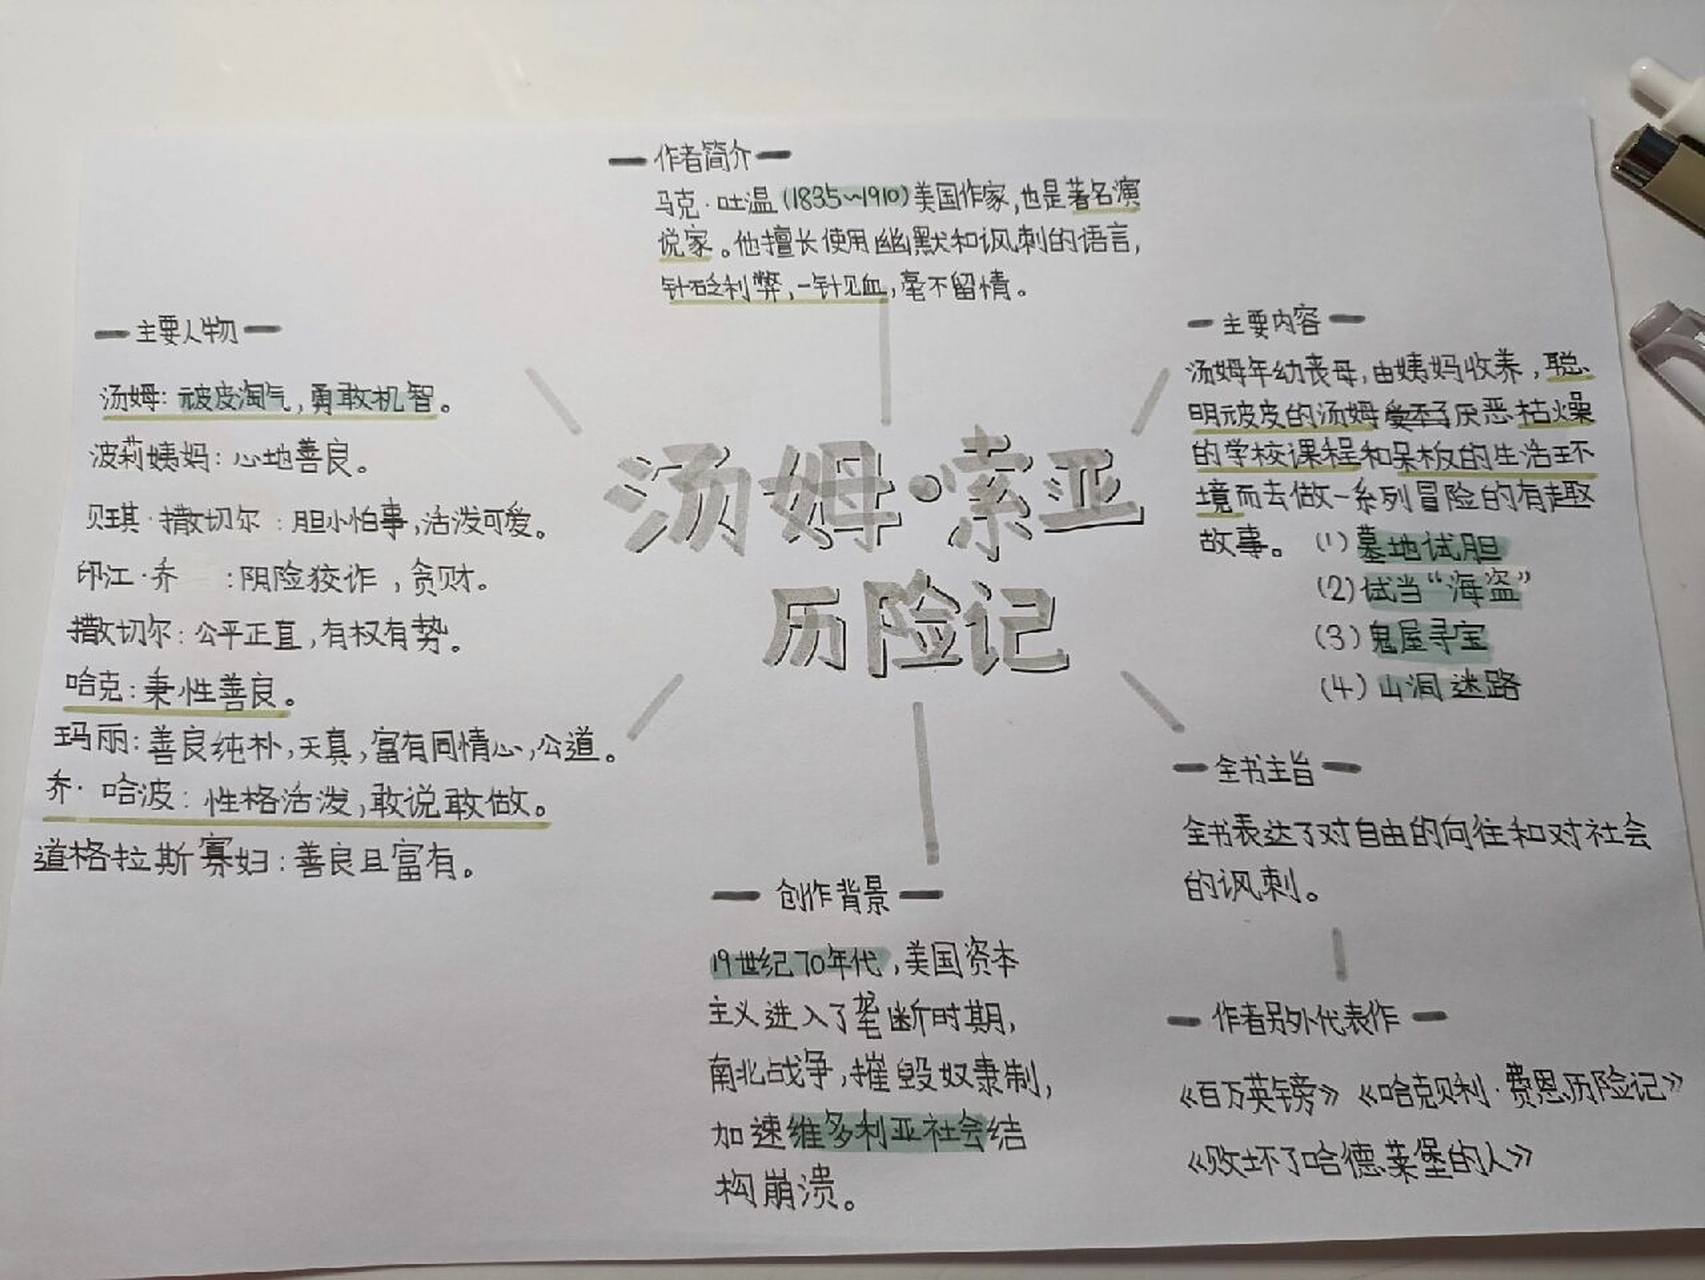 作者简介
马克·吐温(1835~1910)美国作家,也是著名演
说家。他擅长使用幽默和讽刺的语言,
针砭利弊,一针见血,毫不留情。
主要人物
汤姆:顽皮淘气,勇敢机智。
波莉姨妈:心地善良。
贝琪·撒切尔:胆小怕事,活泼可爱。
印江·乔 :阴险狡诈,贪财。
撒切尔:公平正直,有权有势。
哈克:秉性善良。
玛丽:善良纯朴,天真,富有同情心,公道。
乔·哈波:性格活泼,敢说敢做。
道格拉斯寡妇:善良且富有。
汤姆·索亚
历险记
主要内容
汤姆年幼丧母,由姨妈收养,聪
明顽皮的汤姆厌恶枯燥
的学校课程和呆板的生活环
境而去做一系列冒险的有趣
故事。(1)墓地试胆
(2)试当“海盗”
(3)鬼屋寻宝
(4)山洞迷路
全书主旨
全书表达了对自由的向往和对社会
的讽刺。
创作背景
19世纪70年代,美国资本
主义进入了垄断时期,
南北战争,摧毁奴隶制,
加速维多利亚社会结
构崩溃。
作者另外代表作
《百万英镑》《哈克贝利·费恩历险记》
《败坏了哈德莱堡的人》